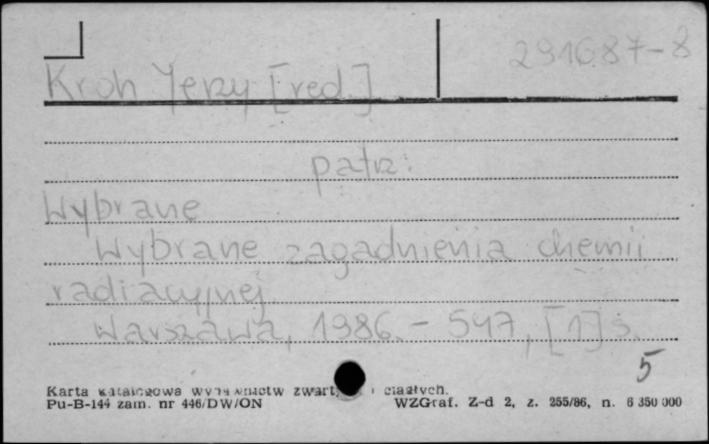 291687-8
Kroh Jerzy [red.]
patrz:
Wybrane
Wybrane zagadnienia chemii
radiacyjnej.
Warszawa, 1986. - 547, [1] s.
5
Karta katalogowa wydawnictw zwartych i ciągłych.
Pu-B-144 zam. nr 446/DW/ON WZGraf. Z-d 2, z. 255/86, n. 6 350 000